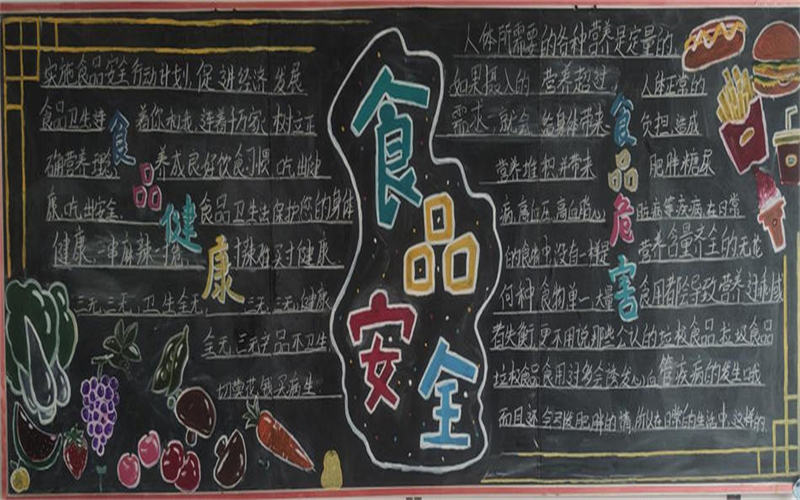 实施食品安全行动计划,促进经济发展
食品卫生连着你和我,连着千万家,树立正
确营养理念,养成良好饮食习惯,吃出健
康,吃出安全。食品卫生法保护您的身体
健康。一串麻辣一串
三无,三无,卫生全无,三无,三无,健康
全无,三无产品不卫生,
切莫花钱买病生
食品健康
食品安全
人体所需要的各种营养是定量的,
如果摄入的营养超过人体正常的
需求,就会给身体带来负担,造成
营养堆积,并带来肥胖糖尿
病,高血压,高血脂,心脏病等疾病,在日常
的食物中,没有一样是营养含量齐全的,无论
何种食物单一大量食用都会导致营养过乖或
者失衡,更不用说那些公认的垃圾食品,垃圾食品
垃圾食品食用过多会诱发心血管疾病的发生哦
而且还会引发肥胖的情,所以在日常的生活中,这样的,
食品危害